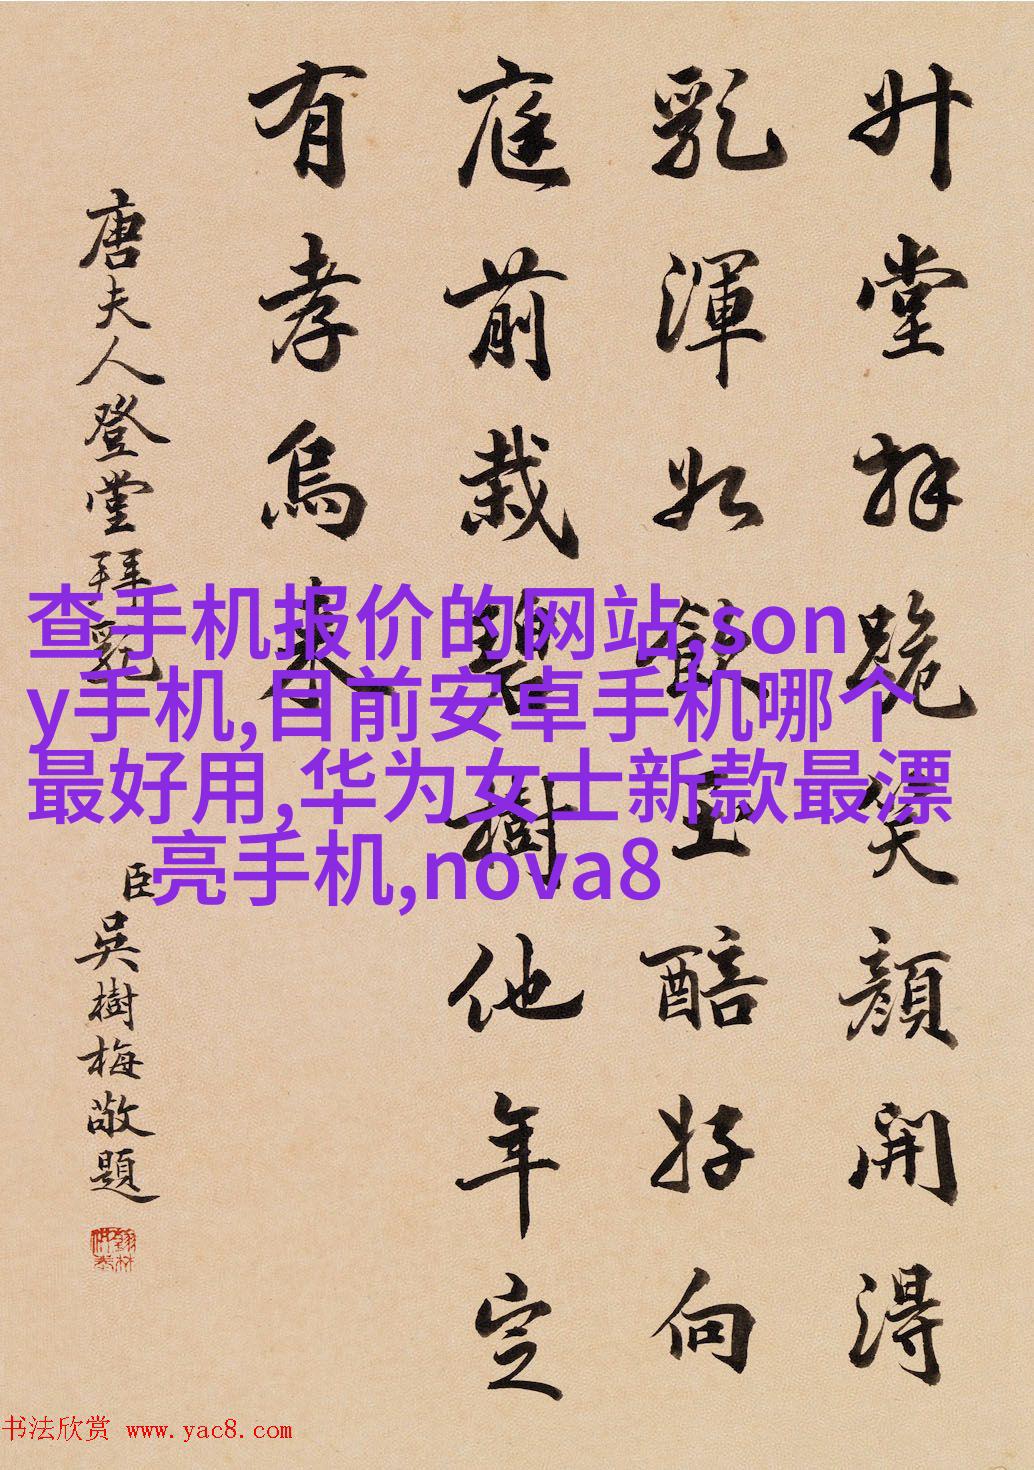 升堂拜跪笑顏開得
乳渾如飲玉醅好向
庭前栽碧樹他年定
有孝烏来
唐夫人登堂拜乳
臣吳樹梅敬題
查手机报价的网站,son
y手机,目前安卓手机哪个
最好用,华为女士新款最漂
亮手机,nova8
书法欣赏 www.yac8.com